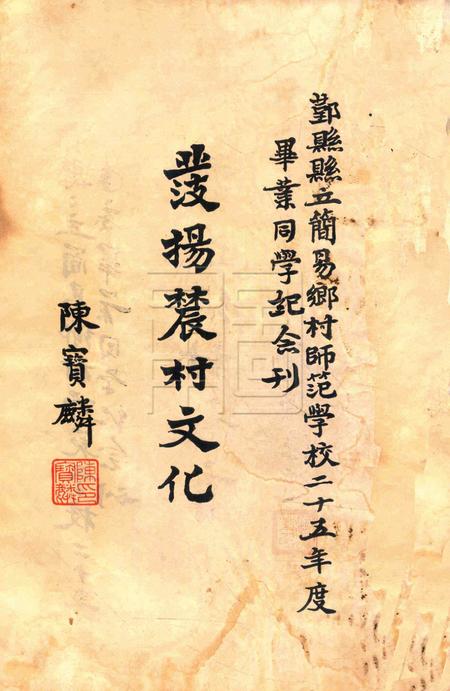 鄞縣縣立簡易鄉村師范學校二十五年度
畢業同學記念刊
發揚農村文化
陳寶麟